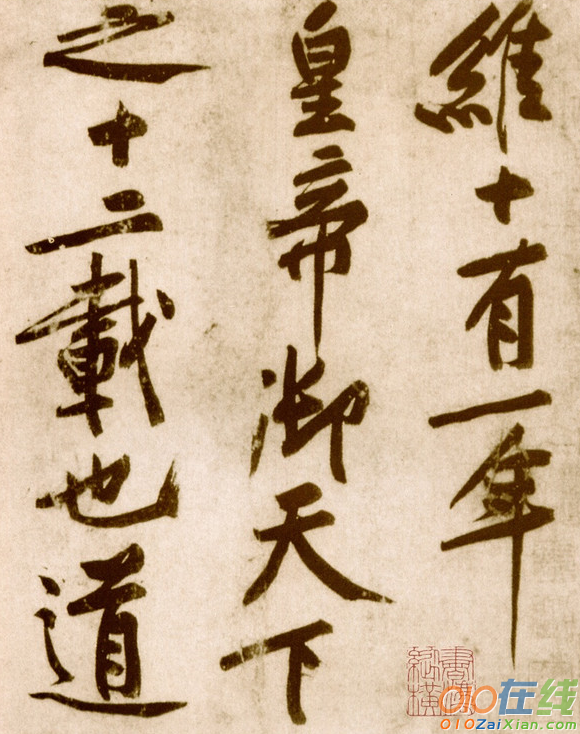 維十有一年
皇帝御天下
之十二載也道
在线
010ZaiXian.com